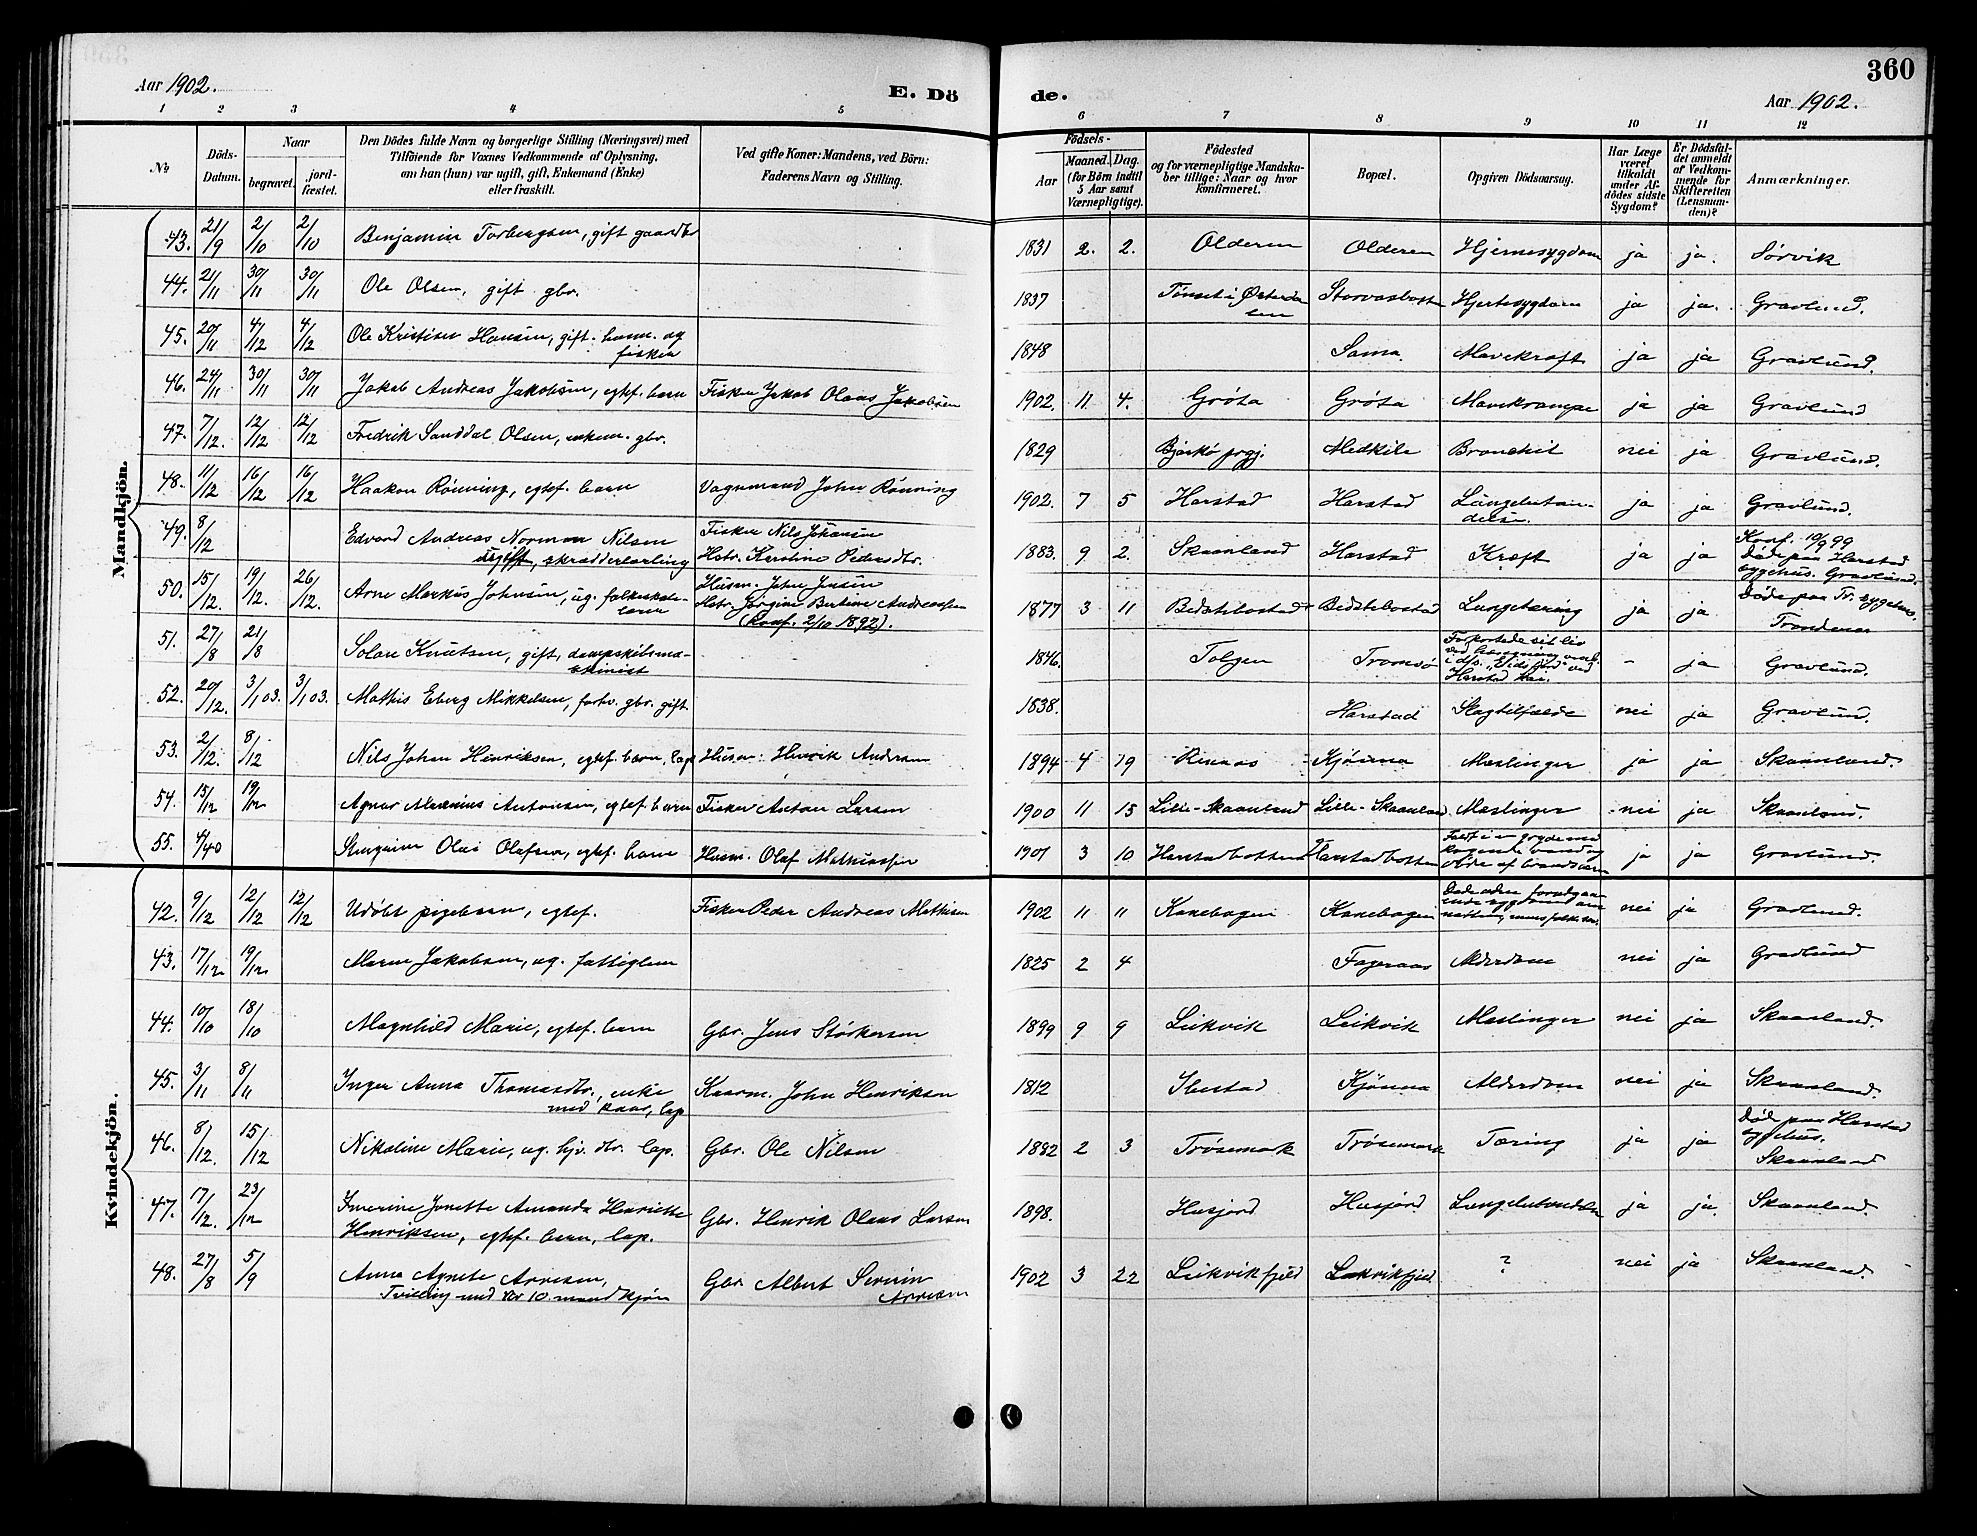 Aar 1902.
E. Dö
de.
360
Aar 1902.
1 2 3 4 5 6 7 8 9 10 11 12
No
Döds-
Datum.
Naar
begravet.
jord-
fæstet.
Den Dödes fulde Navn og borgerlige Stilling (Næringsvei) med
Tilföiende for Voxnes Vedkommende af Oplysning,
om han (hun) var ugift, gift, Enkemand (Enke)
eller fraskilt.
Ved gifte Koner: Mandens, ved Börn:
Faderens Navn og Stilling.
Födsels-
Aar
Maaned. Dag.
(for Börn indtil
5 Aar samt
Værnepligtige).
Födested
og for værnepligtige Mandska-
ber tillige: Naar og hvor
konfirmeret.
Bopæl.
Opgiven Dödsaarsag.
Har Læge
været
tilkaldt
under Af-
dödes sidste
Sygdom?
Er Dödsfal-
det anmeldt
af Vedkom-
mende for
Skifteretten
(Lensman-
den)?
Anmærkninger.
Mandkjön.
43. 21/9 2/10 2/10 Benjamin Torbergsen, gift gaardbr 1831 2. 2. Olderen Olderen Hjernesygdom ja ja. Sørvik
44. 21/11 30/11 30/11 Ole Olsen, gift gbr. 1837 Tönset i Østerda
len Storvasbotn Hjertesygdom ja ja. Gravlund.
45. 20/11 4/12 4/12 Ole Kristian Hansen, gift. husm. og
fisker 1848 Sama. Mavekræft ja ja Gravlund.
46. 24/11 30/11 30/11 Jakob Andreas Jakobsen, egtef. barn Fisker Jakob Olaus Jakobsen 1902. 11 4. Grøta Grøta Mavekrampe ja ja Gravlund
47. 7/12. 12/12 12/12 Fredrik Sanddal Olsen, enkem. gbr. 1829 Bjarkö prgj. Medkile Bronchit nei ja Gravlund.
48. 11/12 16/12 16/12 Haakon Rönning, egtef. barn Vognmand John Rönning 1902. 7 5 Harstad Harstad Lungebetæn-
delse. ja ja Gravlund.
49. 8/12 Edvard Andreas Norman Nilsen
ugift, skrædderlærling Fisker Nils Johansen
Hstr. Kerstine Pedersdtr. 1883. 9 2. Skaanland Harstad Kræft ja ja Konf. 10/9 99
Döde paa Harstad
sygehus. Gravlund.
50. 15/12. 19/12. 26/12. Arne Markus Johnsen, ug. folkeskole-
lærer Husm. John Jensen
Hstr. Jörgine Bertine Andreassen
(Konf. 2/10 1892). 1877 3 11 Bedstebostad Bedstebostad Lungetæring ja ja Döde paa Tr. sygehus.
Trondenes
51. 27/8 21/8 Knutsen, gift, dampskibsma-
skinist 1846. Tolgen Tromsø Forkortede sit liv
ved hængning
i d/s. ved
Harstad kai. - ja Gravlund.
52. 20/12. 3/1 03. 3/1 03. Mathis Eberg Mikkelsen, forhv. gbr. gift 1838. Harstad Slagtilfælde nei ja Gravlund.
53. 2/12. 8/12 Nils Johan Henriksen, egtef. barn, lap Husm. Henrik Andersen 1894 4 19 Kjönna Meslinger ja ja Skaanland.
54. 15/12 19/12 Agnar Marinius Antonsen, egtef. barn Fisker Anton Larsen 1900 11 15 Lille-Skaanland Lille-Skaanland Meslinger nei ja Skaanland.
55. 4/10 Olai Olafsen, egtef. barn Husm. Olaf Mathiassen 1901 3 10 Harstadbotten Harstadbotten Faldt i en gryde med
kogende vand og
døde af brandsaar ja ja Gravlund.
Kvindekjön.
42. 9/12 12/12 12/12 Udöbt pigebarn, egtef. Fisker Peder Andreas Mathisen 1902 11 11 Kanebogen Kanebogen Døde uden forudgaa-
ende sygdom om
natten, mens nei ja Gravlund.
43. 17/12 19/12 Maren Jakobsen, ug. fattiglem 1825 2 4 Fageraas Alderdom nei ja Gravlund
44. 10/10 18/10 Magnhild Marie, egtef. barn Gbr. Jens Störkersen 1899 9 9 Leikvik Leikvik Meslinger nei ja Skaanland.
45. 3/11 8/11 Inger Anna Thomasdtr., enke
med kaar, lap Kaarm. John Henriksen 1812 Ibestad Kjönna Alderdom nei ja Skaanland.
46. 8/12. 15/12 Nikoline Marie, ug. hjv. dtr. lap. Gbr. Ole Nilsen 1882 2 3 Trössemark Trössemark Tæring ja ja Död paa Harstad
sygehus.
Skaanland
47. 17/12. 23/12 Jonette Amanda Henriette
Henriksen, egtef. barn, lap. Gbr. Henrik Olaus Larsen 1898. Husjord Husjord Lungebetændelse ja ja. Skaanland.
48. 27/8 5/9 Anna Agnete Arnesen,
Tvilling med No 10. mandkjön Gbr. Albert Severin
Arnesen 1902 3 22 Leikvikfjeld Leikvikfjeld ? nei ja Skaanland.